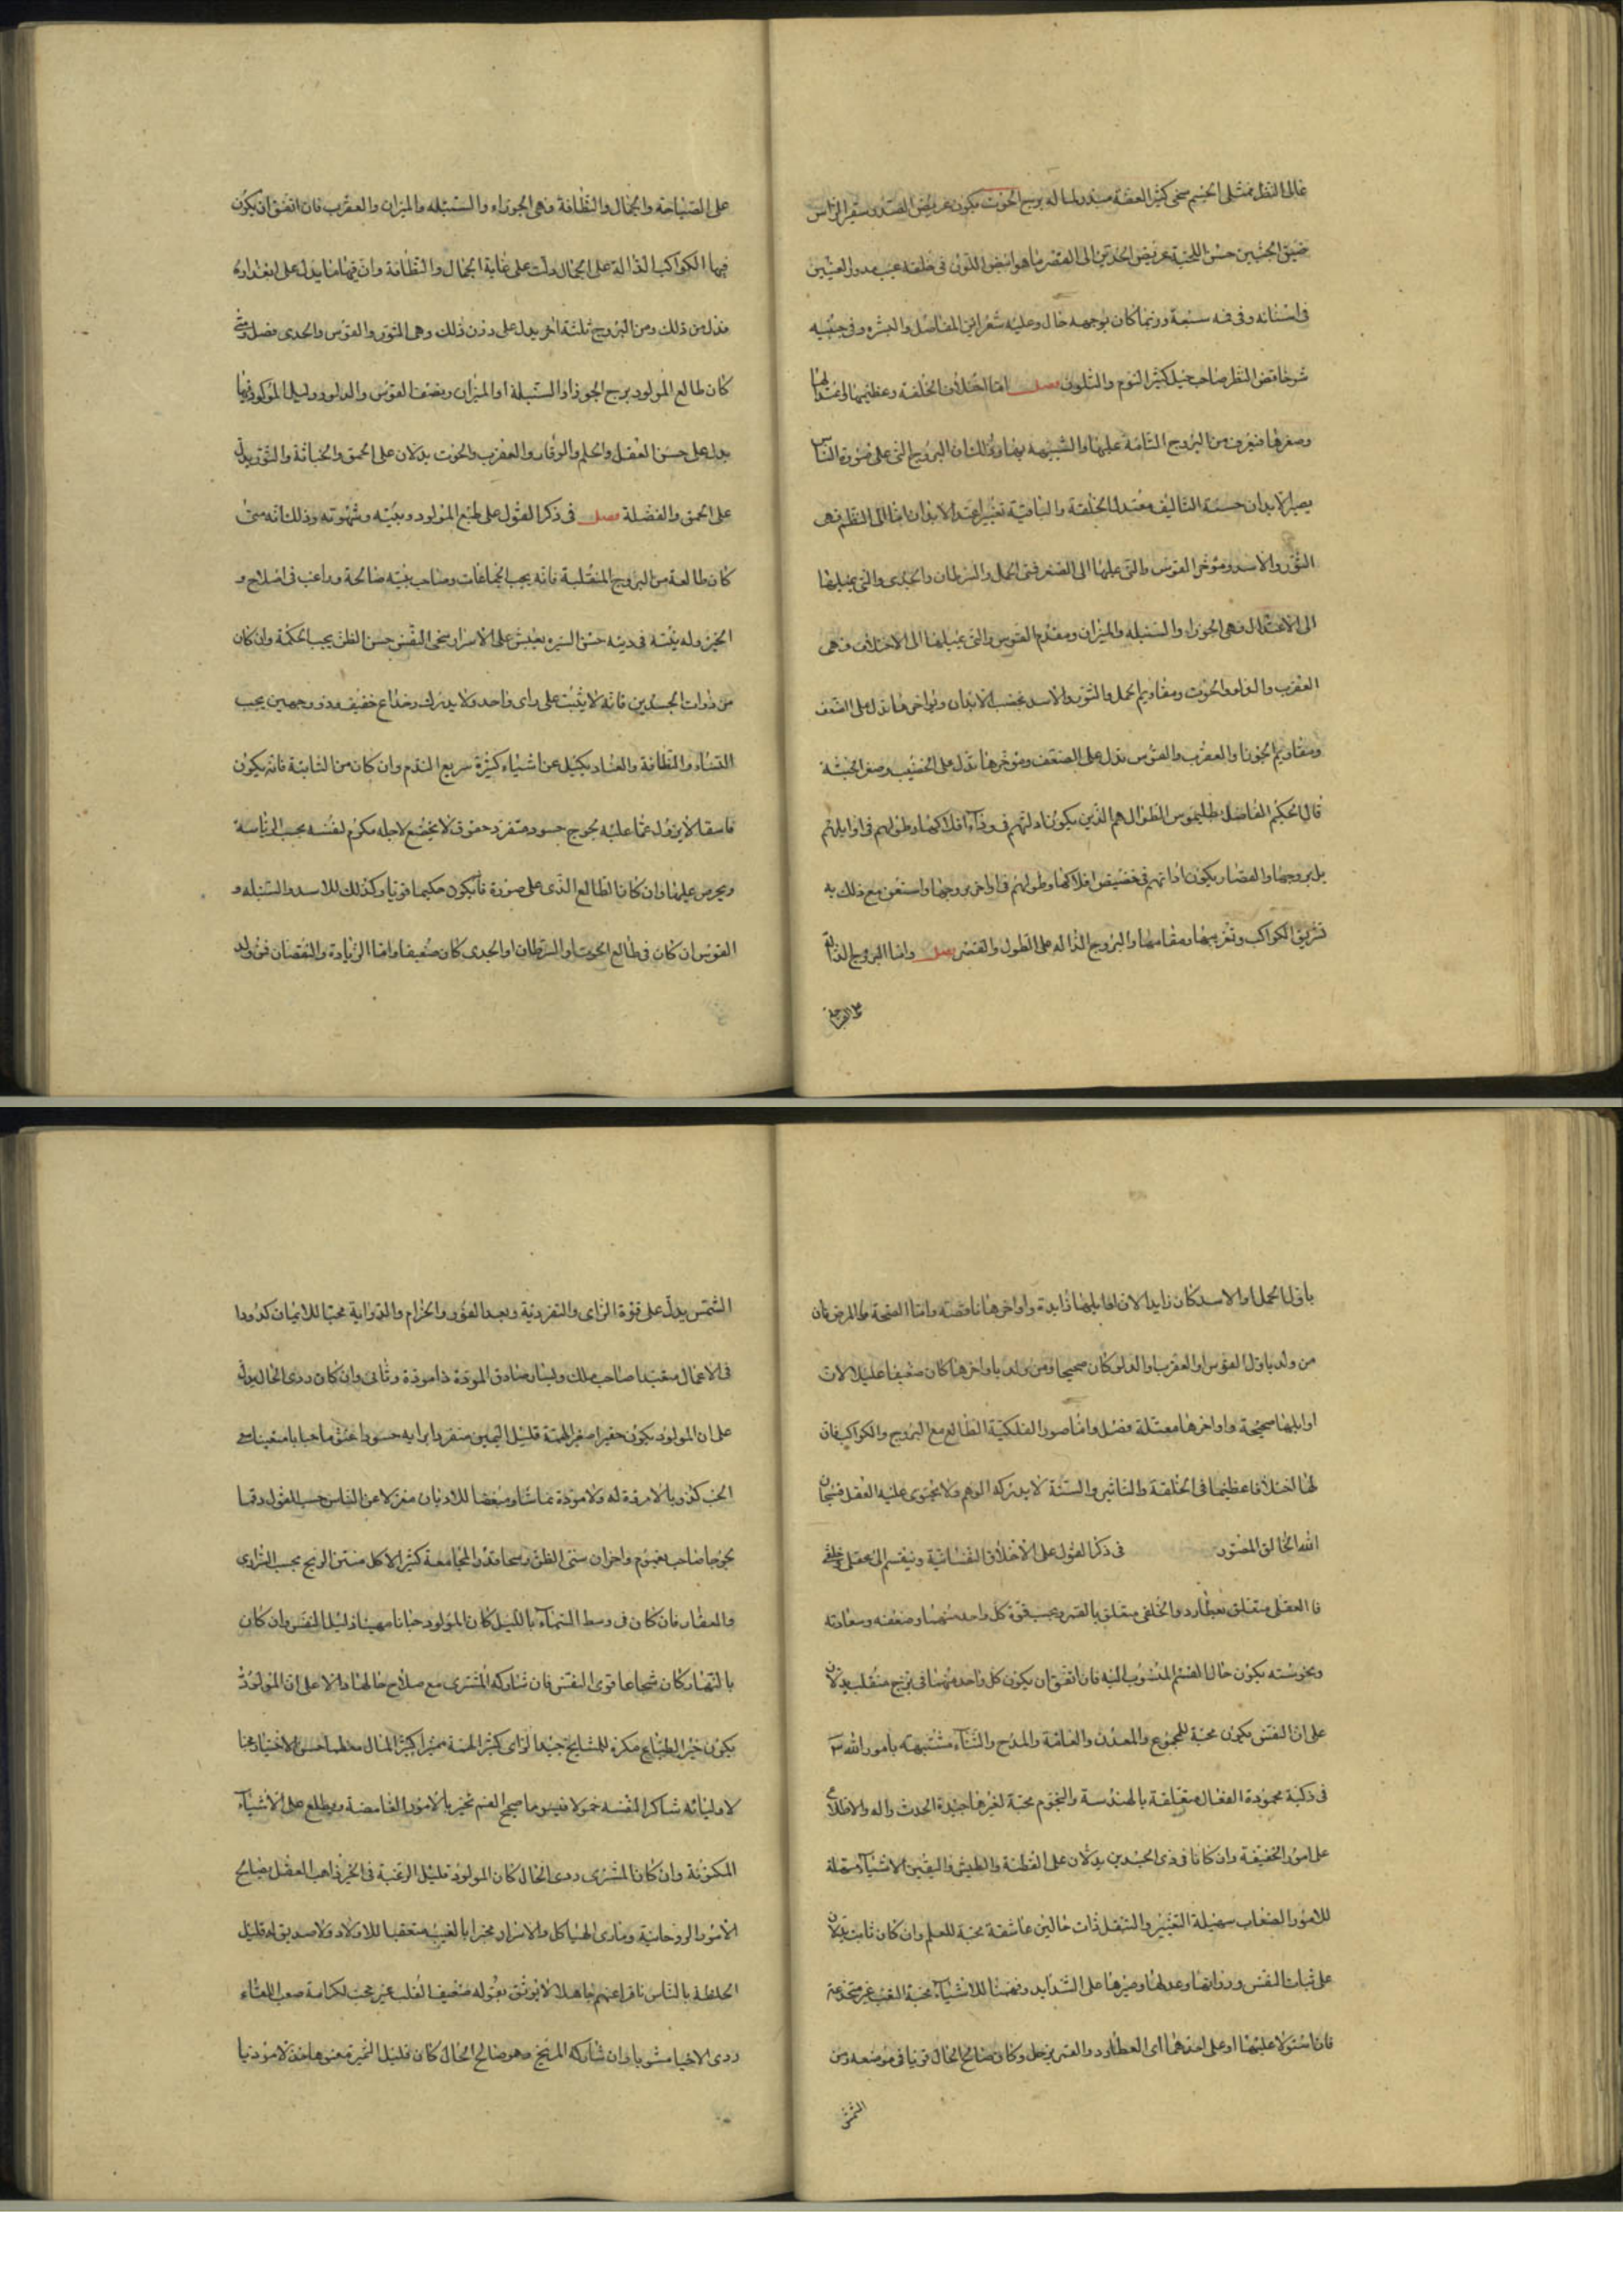 غالى النظر ممتلى الجسم سخى كثير العفة مبذر لماله برج الحوت يكون عريض الصدر صغير الراس
ضيق الجبين حسن اللحية عريض الخدين الى القصر ما هو ابيض اللون فى خلقه عيب مدور العينين
فى اسنانه وفى فمه سعة وربما كان بوجهه خال وعليه شعر ابين المفاصل والبشره وفى جبينه
ناقص النظر صاحب حيل كثير النوم والتلون فصل اما اختلاف الخلقة وعظيمها واعتدالها
وصغرها فيعرف من البروج التامة عليها والشبيهه بها وذلك ان البروج التى على صورة الناس
يصير الابدان حسنة التاليف معتدلة الخلقة والباقية تغير اعتدال الابدان اما الى العظم فهى
الثور والاسد ومؤخر القوس والتى عليها الى الصغر فهى الحمل والسرطان والجدى والتى يميلها
الى الاعتدال فهى الجوزاء والسنبله والميزان ومقدم القوس والتى يميلها الى الاختلاف فهى
العقرب والدلو والحوت ومقاديم الحمل والثور والاسد تخصب الابدان واواخرها تدل على الضعف
ومقاديم الجوزا والعقرب والقوس تدل على الضعف ومؤخرها تدل على الخصب وصغر الجثة
قال الحكيم الفاضل بطليموس الطوال هم الذين يكون ادلتهم فى ذراء افلاكها وطولهم فى اوايلهم
بل بروجها والقصار يكون ادلتهم فى حضيض افلاكها وطولهم فى اواخر بروجها واستعن مع ذلك به
تشريق الكواكب وتغريبها ومقامها والبروج الدالة على الطول والقصر فصل واما البروج الدالة
على الصباحة والجمال والنظافة وهى الجوزاء والسنبله والميزان والعقرب فان اتفق ان يكون
فيها الكواكب الدالة على الجمال دلت على غاية الجمال والنظافة وان فيها ما يدل على
من ذلك ومن البروج ثلثة اخر يدل على دون ذلك وهى الثور والقوس والجدى فصل ومتى
كان طالع المولود برج الجوزا والسنبلة او الميزان ونصف القوس والدلو ودليل المولود فيها
يدل على حسن العقل والحلم والوقار والعقرب والحوت يدلان على الحمق والخيانة والثور يدل
على الحمق والفضلة فصل فى ذكر القول على طبع المولود ونيته وشهوته وذلك انه متى
كان طالعه من البروج المنقلبة فانه يحب الجماعات وصاحب نية صالحة وراغب فى اصلاح و
الخير وله نية فى دينه حسن السيره يعيش على الاسرار سخى النفس حسن الظن يحب الحكمة وان كان
من ذوات الجسدين فانه لا يثبت على راى واحد ولا يدرك وخداع خفيف وذو وجهين يحب
النساء والنظافة والعناد يكيل عن اشياء كثيرة سريع الندم وان كان من الثابتة فانه يكون
فاسقا لا يزول عما عليه لجوج حسود متفرد حقود لا يخضع لاجله مكرم لنفسه يحب الرئاسة
ويحرص عليها وان كان الطالع الذى على صورة يكون حكيما قويا وكذلك للاسد والسنبله و
القوس ان كان فى طالع الحوت او السرطان او الجدى كان ضعيفا واما الزيادة والنقصان فمن ولد
باول الحمل او الاسد كان زايدا لان اوايلها زايدة واواخرها ناقصة واما الصحة والمرض فان
من ولد باول القوس او العقرب او الدلو كان صحيحا ومن ولد باواخرها كان ضعيفا عليلا لان
اوايلها صحيحة واواخرها معتلة فصل واما صور الفلكية الطالع مع البروج والكواكب فان
لها اختلافا عظيما فى الخلقة والتاثير والسنة لا يدركه الوهم ولا يحتوى عليه العقل فسبحان
الله الخالق المصور فى ذكر القول على الاخلاق النفسانية وينقسم الى عقلى وخلقى
فالعقلى متعلق بعطارد والخلقى متعلق بالقمر وبحسب قوة كل واحد منهما وضعفه وسعادته
ونحوسته يكون حال القسم المنسوب اليه فان اتفق ان يكون كل واحد منهما فى برج منقلب يدلان
على ان النفس يكون محبة للجموع والمعدن والعامة والمدح والثناء مشتبهه بامور الله
فى ذكية محمودة الفعال متعلقة بالهندسة والنجوم محبة لغيرها جيدة الحدث واله والاطلاع
على امور الخفيفة وان كانا فى ذى الجسدين يدلان على الفطنة والطيش واليقين للاشياء متقلة
للامور الصعاب سهيلة التغيير والتنقل ذات حالين عاشقة محبة للعلم وان كان ثابت يدلان
على ثبات النفس ورزانتها وعدلها وصبرها على الشدايد وفهمنا للاشياء محبة التعب غير منخدعة
فان استولا عليهما او على احدهما اى العطارد والقمر زحل وكان صالح الحال قويا فى موضعه ومن
الشمس
الشمس يدل على قوة الراى والتفردية وبعد الغور والحزام والدراية محبا للايمان كدودا
فى الاعمال مقتيدا صاحب ملك ويسار صادق المودة ذا مودة وثانى وان كان ردى الحال يدل
على ان المولود يكون حقيرا صغير الهمة قليل اليمين متفرد برايه حسودا
الحب كذوبا لا مرؤة له ولا مودة نماشا ومبغضا للاديان منعزلا عن الناس
لجوجا صاحب غموم واحزان سئ الظن كثير الاكل منتن الريح يحب البرارى
والعقار فان كان فى وسط السماء بالليل كان المولود جبانا مهينا ذليل النفس وان كان
بالنهار كان شجاعا قوى النفس فان شاركه المشترى مع صلاح حالهما دلا على ان المولود
يكون خير الطباع مكرم للمشايخ جيد الراى كثير الهمة مميزا كثير المال حسن الاختيار محبا
لاوليائه شاكرا لنفسه صحيح الفهم يخبر بالامور الغامضة ويطلع على الاشياء
المكنونة وان كان المشترى ردى الحال كان المولود قليل الرغبة فى الخير ذاهب العقل
الامور الروحانية وماوى الهياكل والاسرار مخبرا بالغيب متعقبا للاولاد ولا صديق له قليل
الخلطة بالناس نافرا عنهم جاهلا لا يوثق بقوله ضعيف القلب غير محب لكرامة صعب اللقاء
ردى الاختيار وان شاركه المريخ وهو صالح الحال كان قليل التميز معنوها